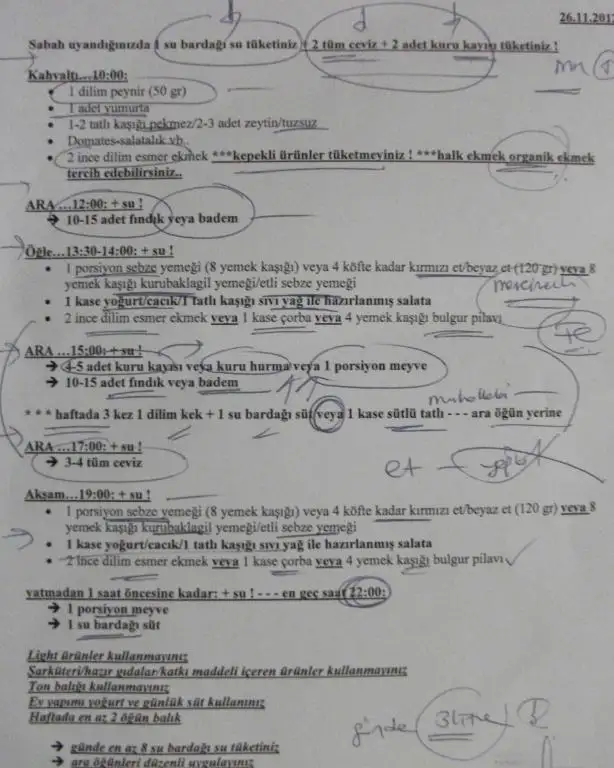 26.11.201
Sabah uyandığınızda 1 su bardağı su tüketiniz + 2 tüm ceviz + 2 adet kuru kayısı tüketiniz !
Kahvaltı...10:00:
• 1 dilim peynir (50 gr)
• 1 adet yumurta
• 1-2 tatlı kaşığı pekmez/2-3 adet zeytin/tuzsuz
• Domates-salatalık vb..
• 2 ince dilim esmer ekmek ***kepekli ürünler tüketmeyiniz ! ***halk ekmek organik ekmek
tercih edebilirsiniz..
ARA...12:00: + su !
➔ 10-15 adet fındık veya badem
Öğle...13:30-14:00: + su !
• 1 porsiyon sebze yemeği (8 yemek kaşığı) veya 4 köfte kadar kırmızı et/beyaz et (120 gr) veya 8
yemek kaşığı kurubaklagil yemeği/etli sebze yemeği
• 1 kase yoğurt/cacık/1 tatlı kaşığı sıvı yağ ile hazırlanmış salata
• 2 ince dilim esmer ekmek veya 1 kase çorba veya 4 yemek kaşığı bulgur pilavı
ARA ...15:00: + su !
➔ 4-5 adet kuru kayısı veya kuru hurma veya 1 porsiyon meyve
➔ 10-15 adet fındık veya badem
muhallebi
*** haftada 3 kez 1 dilim kek + 1 su bardağı süt veya 1 kase sütlü tatlı - - - ara öğün yerine
ARA ...17:00: + su !
➔ 3-4 tüm ceviz
et
Akşam...19:00: + su !
• 1 porsiyon sebze yemeği (8 yemek kaşığı) veya 4 köfte kadar kırmızı et/beyaz et (120 gr) veya 8
yemek kaşığı kurubaklagil yemeği/etli sebze yemeği
• 1 kase yoğurt/cacık/1 tatlı kaşığı sıvı yağ ile hazırlanmış salata
• 2 ince dilim esmer ekmek veya 1 kase çorba veya 4 yemek kaşığı bulgur pilavı
yatmadan 1 saat öncesine kadar: + su ! - - - en geç saat 22:00:
➔ 1 porsiyon meyve
➔ 1 su bardağı süt
Light ürünler kullanmayınız
Şarküteri/hazır gıdalar/katkı maddeli içeren ürünler kullanmayınız
Ton balığı kullanmayınız
Ev yapımı yoğurt ve günlük süt kullanınız
Haftada en az 2 öğün balık
günde 3 litre
➔ günde en az 8 su bardağı su tüketiniz
➔ ara öğünleri düzenli uygulayınız